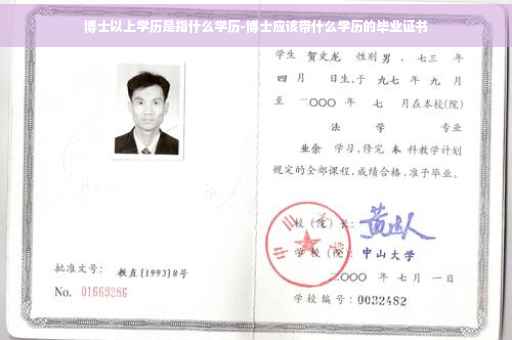 博士以上学历是指什么学历-博士应该带什么学历的毕业证书
学生 贺文龙 性别 男 、七三 年
四 月 日生,于 九七 年 九 月
至 二〇〇〇 年 七 月在本校(院)
法 学 专业
业余 学习,修完 本 科教学计划
规定的全部课程,成绩合格,准予毕业。
校(院)长:
学校(院): 中山大学
批准文号: 教直[1993]8号
二〇〇〇 年 七 月 一 日
No. 01669286
学校编号: 0032482